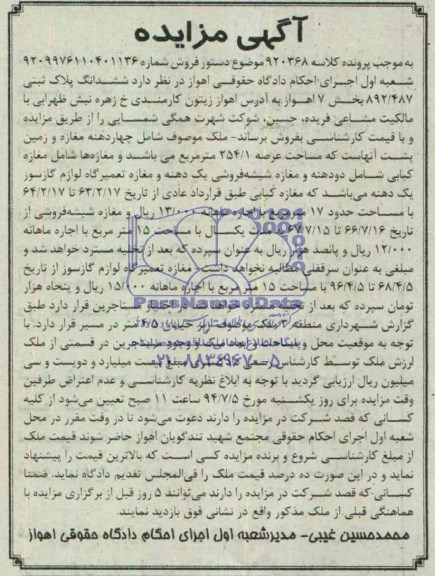 آگهی مزایده
به موجب پرونده کلاسه ۹۲۰۳۶۸ موضوع دستور فروش شماره ۹۲۰۹۹۷۶۱۱۰۴۰۱۱۳۶
شعبه اول اجرای احکام دادگاه حقوقی اهواز در نظر دارد ششدانگ پلاک ثبتی
۸۹۲/۴۸۷ بخش ۷ اهواز به آدرس اهواز زیتون کارمندی خ زهره نبش ظهرابی با
مالکیت مشاعی فریده، حسین، شوکت شهرت همگی شمسایی را از طریق مزایده
و با قیمت کارشناسی بفروش برساند- ملک موصوف شامل چهاردهنه مغازه و زمین
پشت آنهاست که مساحت عرصه ۲۵۴/۱ مترمربع می باشد و مغازه‌ها شامل مغازه
کبابی شامل دودهنه و مغازه شیشه‌فروشی یک دهنه و مغازه تعمیرگاه لوازم گازسوز
یک دهنه می‌باشد که مغازه کبابی طبق قرارداد عادی از تاریخ ۶۳/۲/۱۷ تا ۶۴/۲/۱۷
با مساحت حدود ۱۷ ماهانه ۱۳/۰۰۰ ریال و مغازه شیشه‌فروشی از
تاریخ ۶۶/۷/۱۶ تا ۶۷/۷/۱۵ یکسال با مساحت ۱۵ متر مربع با اجاره ماهانه
۱۲/۰۰۰ ریال و پانصد ریال به عنوان سپرده که بعد از تخلیه مسترد خواهد شد و
مبلغی به عنوان سرقفلی مطالبه نخواهد داشت و مغازه تعمیرگاه لوازم گازسوز از تاریخ
۶۸/۴/۵ تا ۹۶/۴/۵ با مساحت ۱۵ متر مربع با اجاره ماهانه ۱۵/۰۰۰ ریال و پنجاه هزار
تومان سپرده که بعد از مستاجرین قرار دارد طبق
گزارش شهرداری منطقه ۳ ملک موصوف در مسیر قرار دارد. با
توجه به موقعیت محل و در قسمتی از ملک
ارزش ملک توسط کارشناس رسمی میلیارد و دویست و سی
میلیون ریال ارزیابی گردید با توجه به ابلاغ نظریه کارشناسی و عدم اعتراض طرفین
وقت مزایده برای روز یکشنبه مورخ ۹۴/۷/۵ ساعت ۱۱ صبح تعیین می‌شود از کلیه
کسانی که قصد شرکت در مزایده را دارند دعوت می‌شود تا در وقت مقرر در محل
شعبه اول اجرای احکام حقوقی مجتمع شهید تندگویان اهواز حاضر شوند قیمت ملک
از مبلغ کارشناسی شروع و برنده مزایده کسی است که بالاترین قیمت را پیشنهاد
نماید و در این صورت ده درصد قیمت ملک را فی‌المجلس تقدیم دادگاه نماید. ضمنا
کسانی که قصد شرکت در مزایده را دارند می‌توانند ۵ روز قبل از برگزاری مزایده با
هماهنگی قبلی از ملک مذکور واقع در نشانی فوق بازدید نمایند.
محمدحسین غیبی- مدیرشعبه اول اجرای احکام دادگاه حقوقی اهواز
ParsNamadData
۰۲۱-۸۸۳۴۹۶۷۰-۵